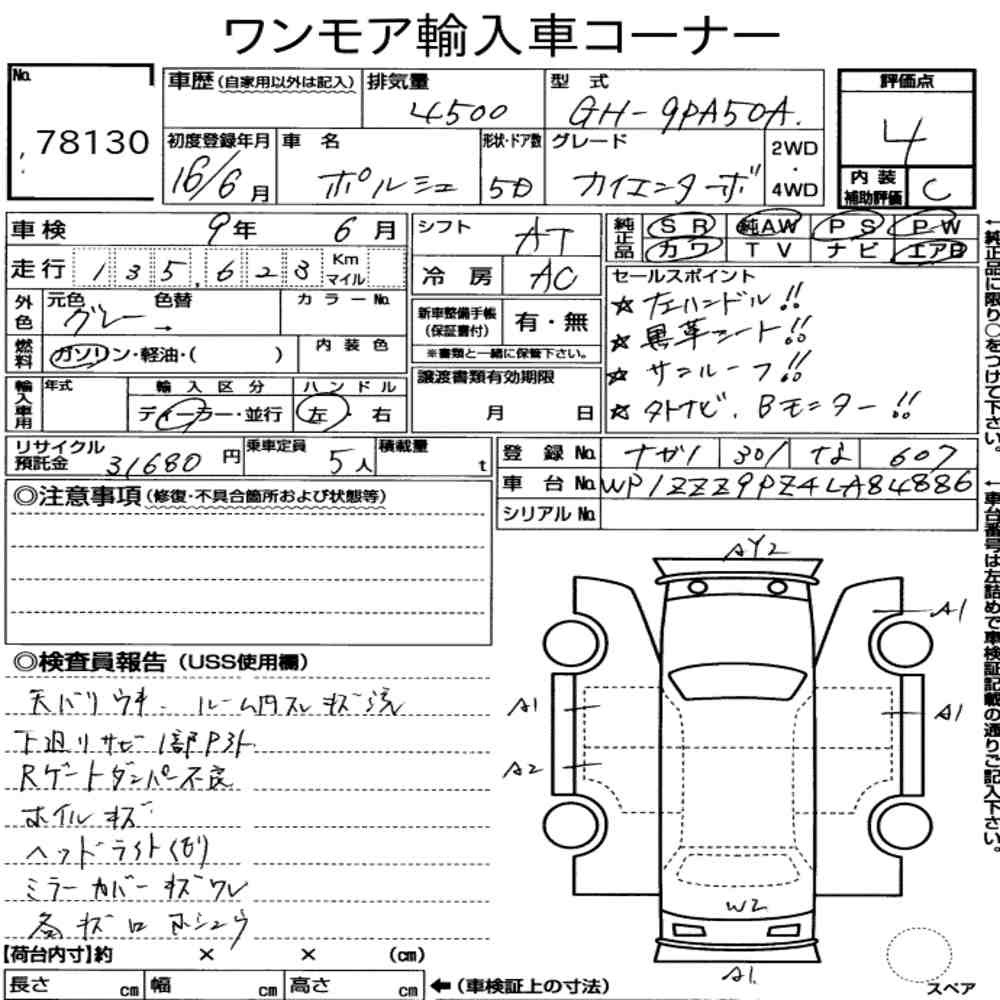 ワンモア輸入車コーナー
No. 78130
車歴 (自家用以外は記入) 排気量 4500 型式 GH-9PA50A.
初度登録年月 16/6月 車名 ポルシェ 形状・ドア数 5D グレード カイエンターボ 2WD・4WD
評価点 4
内装補助評価 C
車検 9年 6月 シフト AT
走行 135,623 Km マイル 冷房 AC
外色 元色 グレー 色替 → カラーNo.
燃料 ガソリン・軽油・( ) 内装色
新車整備手帳 (保証書付) 有・無
※書類と一緒に保管下さい。
輸入車用 年式 輸入区分 ディーラー・並行 ハンドル 左・右
譲渡書類有効期限 月 日
純正品 SR 純AW PS PW
カワ TV ナビ エアB
セールスポイント
☆左ハンドル!!
☆黒革シート!!
☆サンルーフ!!
☆外ナビ、Bモニター!!
←純正品に限り○をつけて下さい。
リサイクル預託金 31680円 乗車定員 5人 積載量 t
登録No. 301 な 607
車台No. WP1ZZZ9PZ4LA84886
シリアルNo.
←車台番号は左詰めで車検証記載の通りご記入下さい。
◎注意事項 (修復・不具合箇所および状態等)
◎検査員報告 (USS使用欄)
天バリウキ. ルーム内スレキズ汚
下廻りサビ 1部Pヌケ
Rゲートダンパー不良
ホイルキズ
ヘッドライトくもり
ミラーカバーキズワレ
各キズ
AY2
A1
A1
A1
A2
W2
A1.
スペア
【荷台内寸】約 × × (cm)
長さ cm 幅 cm 高さ cm ←(車検証上の寸法)